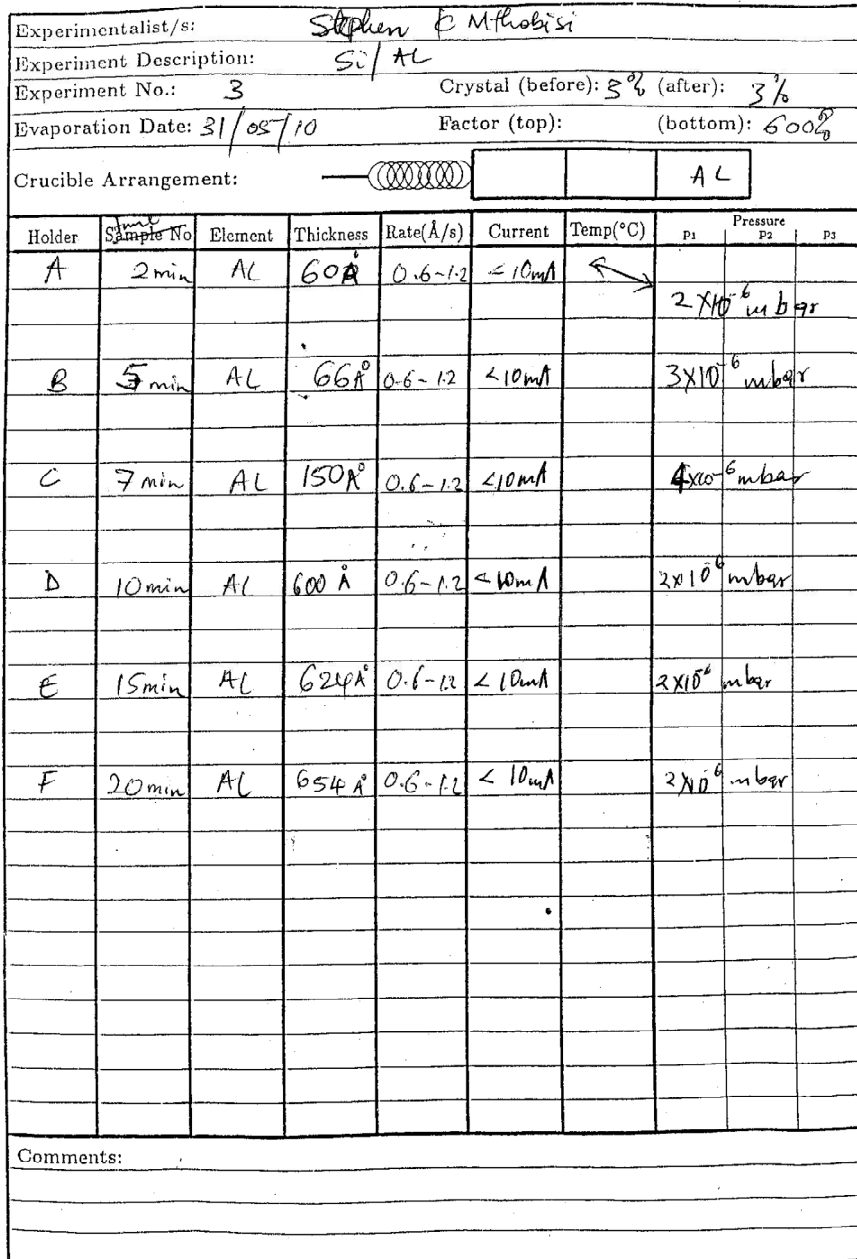 Experimentalist/s: Stephen & Mthobisi
Experiment Description: Si/AL
Experiment No.: 3 Crystal (before): 3% (after): 3%
Evaporation Date: 31/05/10 Factor (top): (bottom): 600%
Crucible Arrangement: AL
time
Holder Sample No Element Thickness Rate(Å/s) Current Temp(°C) Pressure p1 p2 p3
A 2min AL 60Å 0.6-1.2 ≤10mA
2×10⁻⁶ mbar
B 5 min AL 66Å 0.6-1.2 <10mA 3×10⁻⁶ mbar
C 7 min AL 150Å 0.6-1.2 <10mA 4×10⁻⁶ mbar
D 10min Al 600 Å 0.6-1.2 <10mA 2×10⁻⁶ mbar
E 15min AL 624Å 0.6-1.2 <10mA 2×10⁻⁶ mbar
F 20min AL 654Å 0.6-1.2 <10mA 2×10⁻⁶ mbar
Comments: